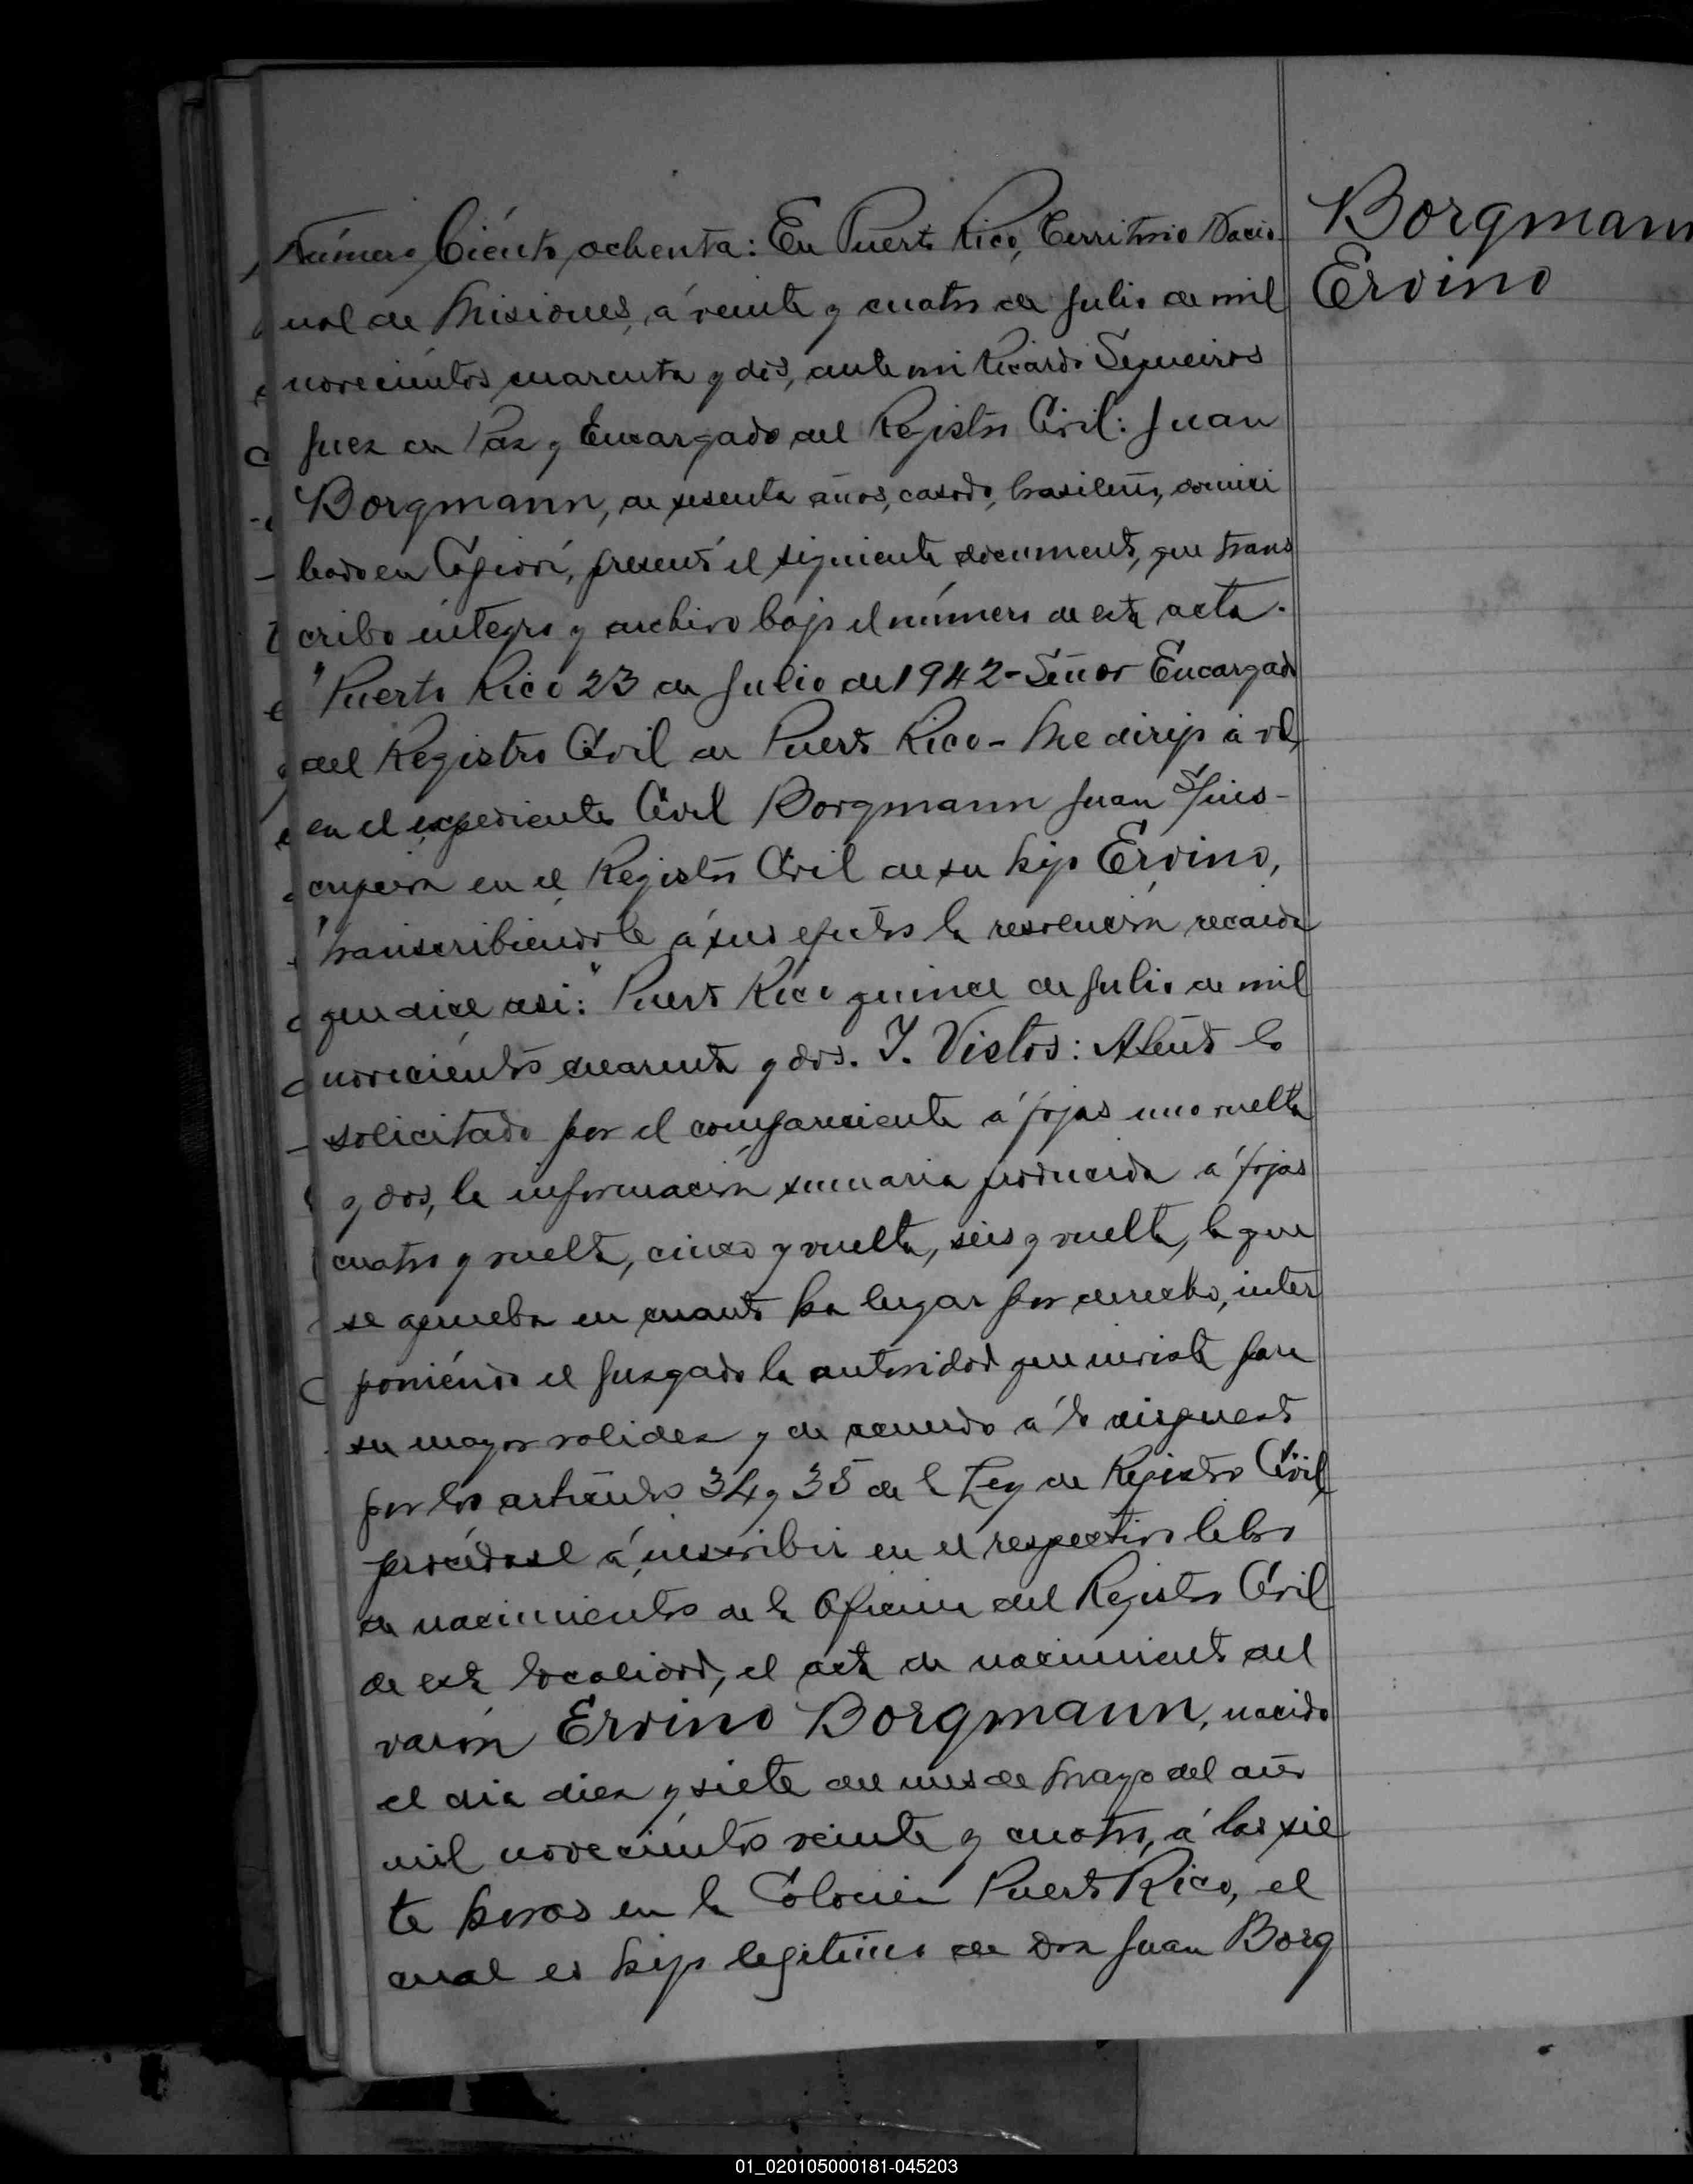 Borgmann
Ervino
Número Ciento ochenta: En Puerto Rico, Territorio Nacio-
nal de Misiones, á veinte y cuatro de Julio de mil
novecientos cuarenta y dos, ante mi Ricardo Sequeiros
Juez de Paz y Encargado del Registro Civil: Juan
Borgmann, de sesenta años, casado, brasileño, domici
liado en presentó el siguiente documento, que trans
cribo íntegro y archivo bajo el número de esta acta.
"Puerto Rico 23 de Julio de 1942-Señor Encargado
del Registro Civil de Puerto Rico-Me dirijo á Vd,
en el expediente Civil Borgmann Juan S/ins-
cripción en el Registro Civil de su hijo Ervino,
transcribiéndole á sus efectos la resolución recaída
que dice asi: "Puerto Rico quince de Julio de mil
novecientos cuarenta y dos. Y. Vistos: Atento lo
solicitado por el compareciente á fojas uno vuelta
y dos, la información sumaria producida á fojas
cuatro y vuelta, cinco y vuelta, seis y vuelta, la que
se aprueba en cuanto ha lugar por derecho, inter
poniéndo el Juzgado la autoridad que inviste para
su mayor validez y de acuerdo á lo dispuesto
por los artículos 34 y 35 de l Ley de Registro Civil,
procédase á inscribir en el respectivo libro
de nacimientos de la Oficina del Registro Civil
de esta localidad, el acta de nacimiento del
varón Ervino Borgmann, nacido
el dia diez y siete del mes de Mayo del año
mil novecientos veinte y cuatro, á las sie
te horas en la Colonia Puerto Rico, el
cual es hijo legítimo de Don Juan Borg
01_020105000181-045203